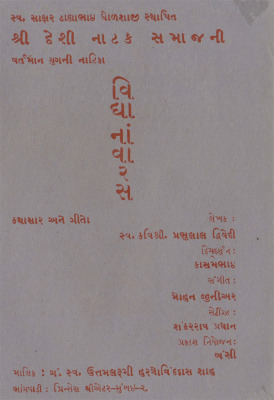 સ્વ. સાક્ષર ડાહ્યાભાઇ ધોળશાજી સ્થાપિત
શ્રી દેશી નાટક સમાજની
વર્તમાન યુગની નાટિકા
વિ
ધા
નાં
વા
ર
સ
કથાસાર અને ગીતો
લેખક :
સ્વ. કવિશ્રી. પ્રભુલાલ દ્વિવેદી
દિગ્દર્શન :
કાસમભાઇ
સંગીત :
મોહન જુનીઅર
સેટીંગ્ઝ :
શંકરરાવ પ્રધાન
પ્રકાશ નિયોજન :
બંસી
માલિક : ગં. સ્વ. ઉત્તમલક્ષ્મી હરગોવિંદદાસ શાહ
ભાંગવાડી : પ્રિન્સેસ થીએટર-મુંબઇ-૨.